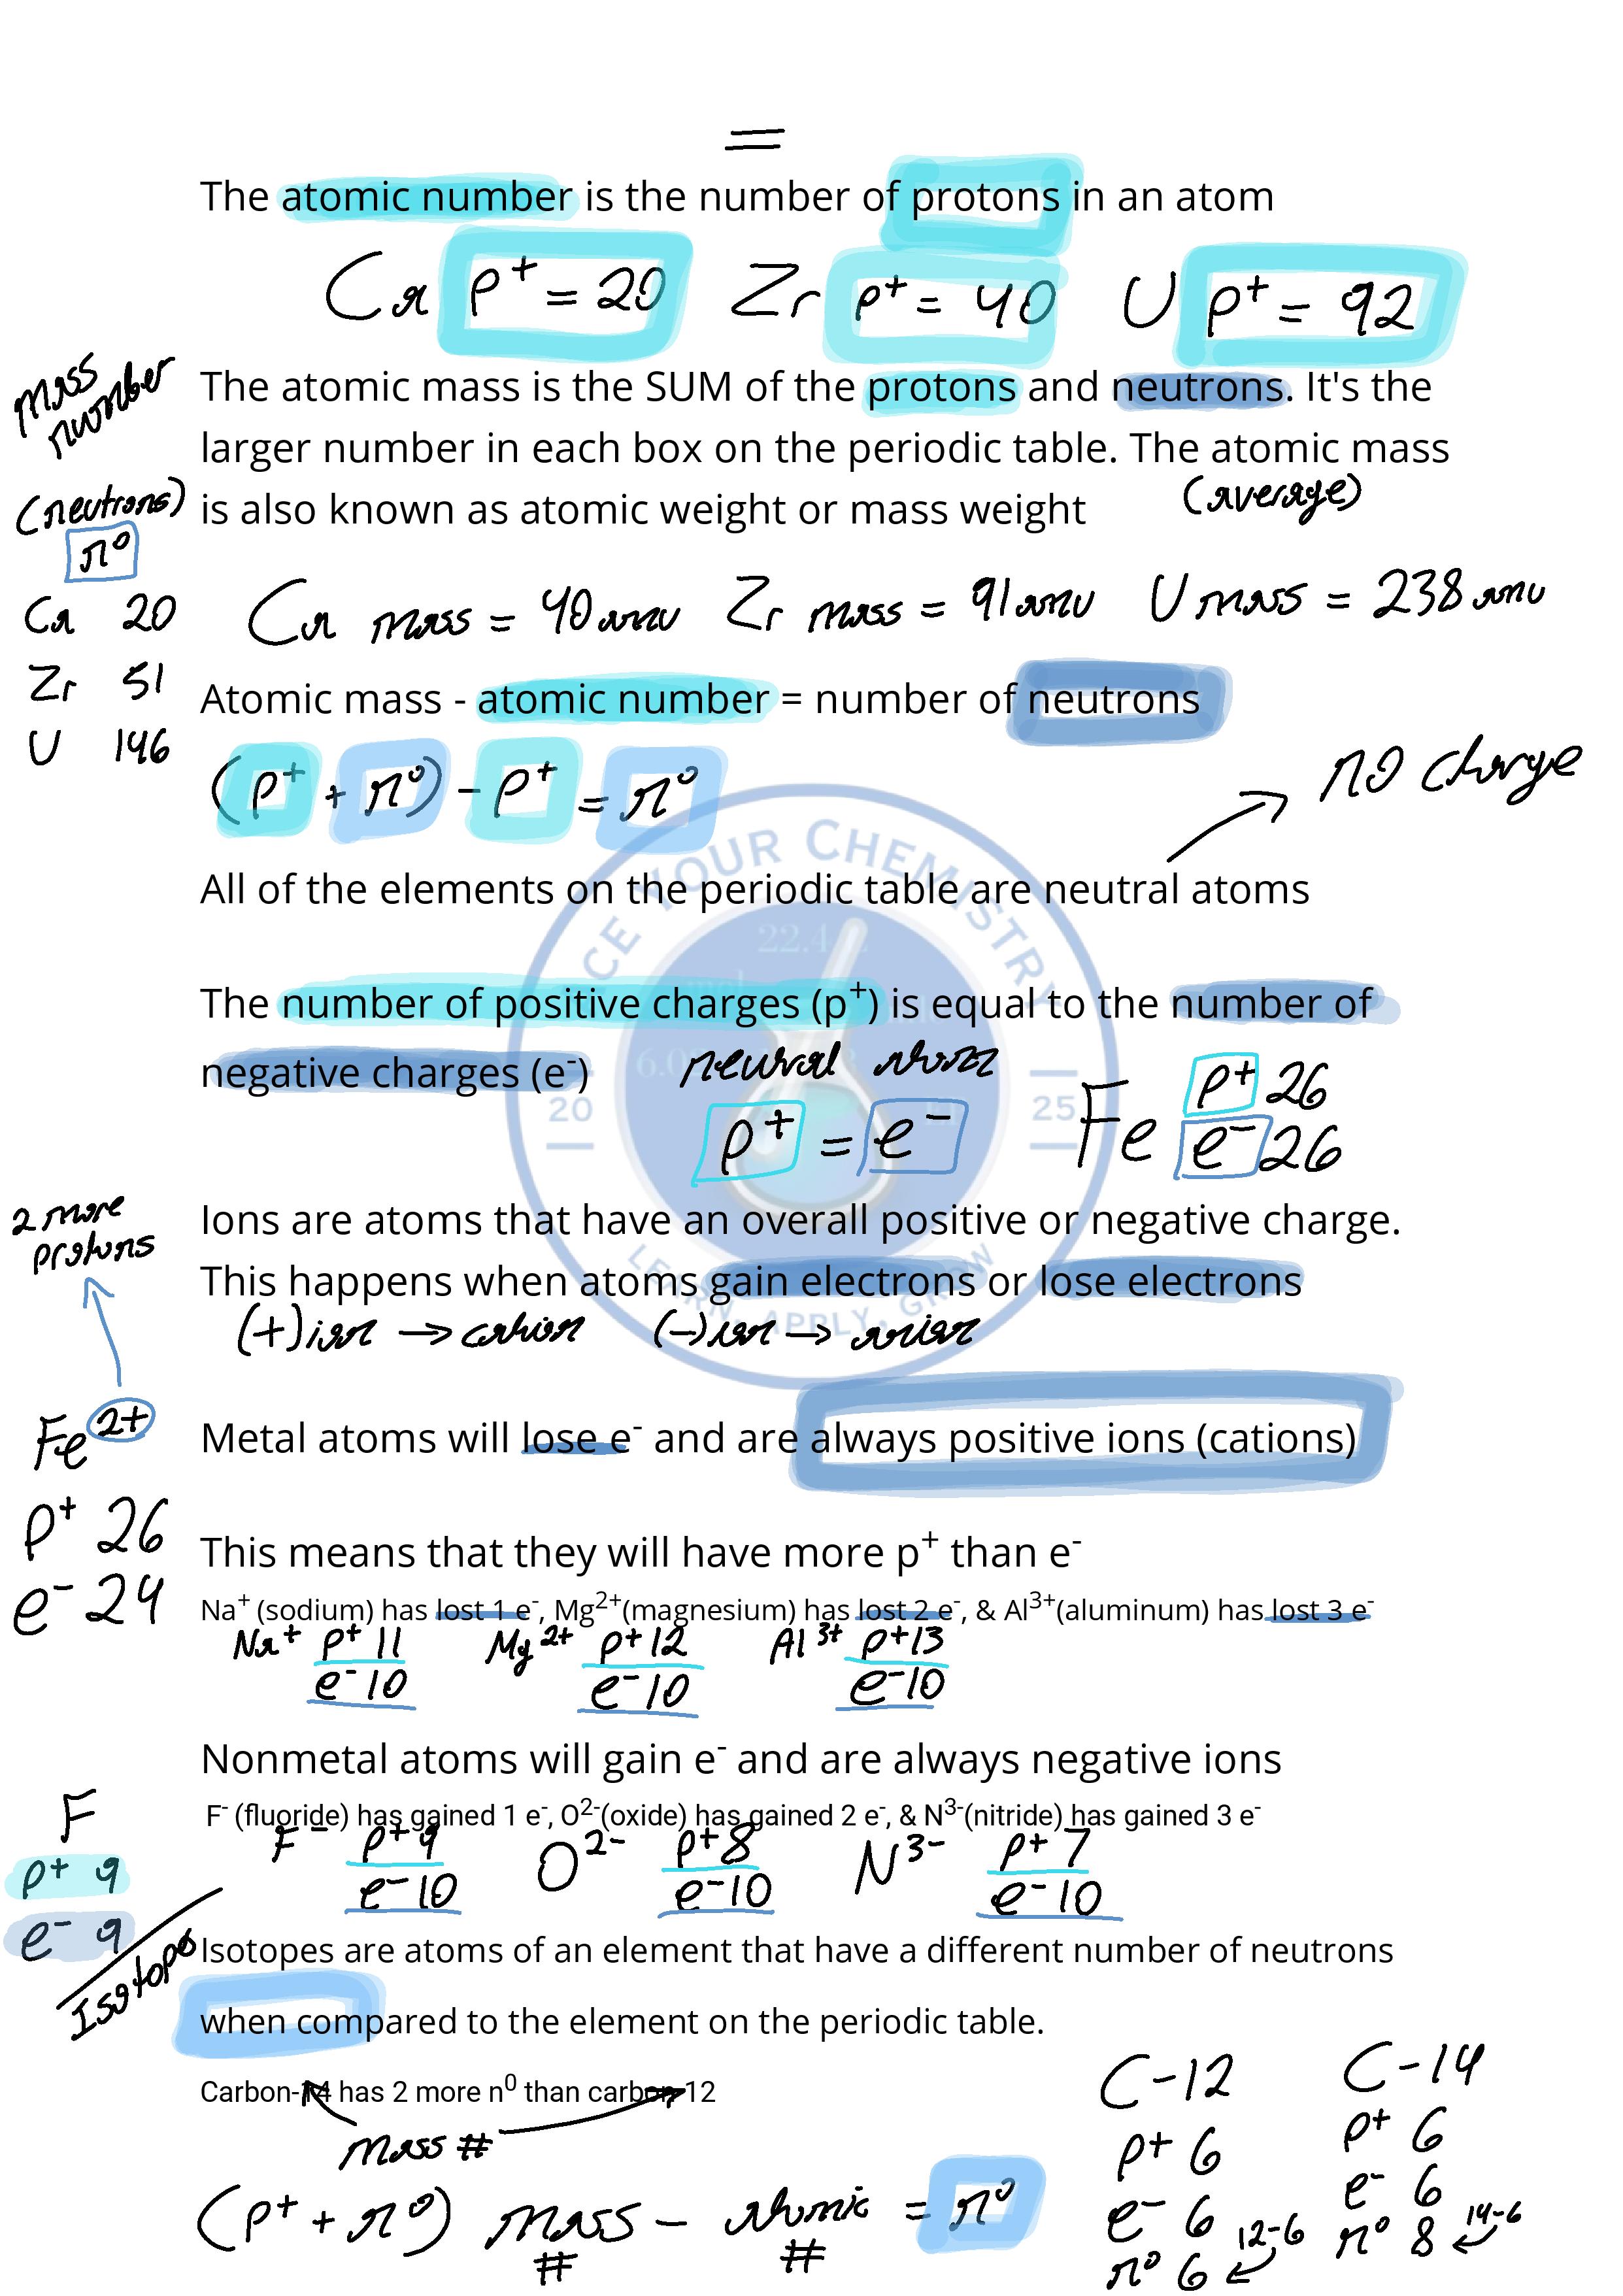 =
The atomic number is the number of protons in an atom
Ca p⁺ = 20 Zr p⁺ = 40 U p⁺ = 92
mass number
The atomic mass is the SUM of the protons and neutrons. It's the
larger number in each box on the periodic table. The atomic mass
is also known as atomic weight or mass weight
(average)
(neutrons)
n⁰
Ca 20
Zr 51
U 146
Ca mass = 40 amu Zr mass = 91 amu U mass = 238 amu
Atomic mass - atomic number = number of neutrons
(p⁺ + n⁰) - p⁺ = n⁰
no charge
All of the elements on the periodic table are neutral atoms
The number of positive charges (p⁺) is equal to the number of
negative charges (e⁻)
neutral atom
p⁺ = e⁻
Fe p⁺ 26
e⁻ 26
CE YOUR CHEMISTRY
22.4
6.02
20 25
LEARN, APPLY, GROW
2 more
protons
Ions are atoms that have an overall positive or negative charge.
This happens when atoms gain electrons or lose electrons
(+) ion → cation (-) ion → anion
Fe²⁺
p⁺ 26
e⁻ 24
Metal atoms will lose e⁻ and are always positive ions (cations)
This means that they will have more p⁺ than e⁻
Na⁺ (sodium) has lost 1 e⁻, Mg²⁺(magnesium) has lost 2 e⁻, & Al³⁺(aluminum) has lost 3 e⁻
Na⁺ p⁺ 11 Mg²⁺ p⁺ 12 Al³⁺ p⁺ 13
e⁻ 10 e⁻ 10 e⁻ 10
Nonmetal atoms will gain e⁻ and are always negative ions
F⁻ (fluoride) has gained 1 e⁻, O²⁻(oxide) has gained 2 e⁻, & N³⁻(nitride) has gained 3 e⁻
F⁻ p⁺ 9 O²⁻ p⁺ 8 N³⁻ p⁺ 7
e⁻ 10 e⁻ 10 e⁻ 10
F
p⁺ 9
e⁻ 9
Isotopes
Isotopes are atoms of an element that have a different number of neutrons
when compared to the element on the periodic table.
Carbon-14 has 2 more n⁰ than carbon-12
mass #
(p⁺ + n⁰) mass # - atomic # = n⁰
C-12
p⁺ 6
e⁻ 6
n⁰ 6 ← 12-6
C-14
p⁺ 6
e⁻ 6
n⁰ 8 ← 14-6